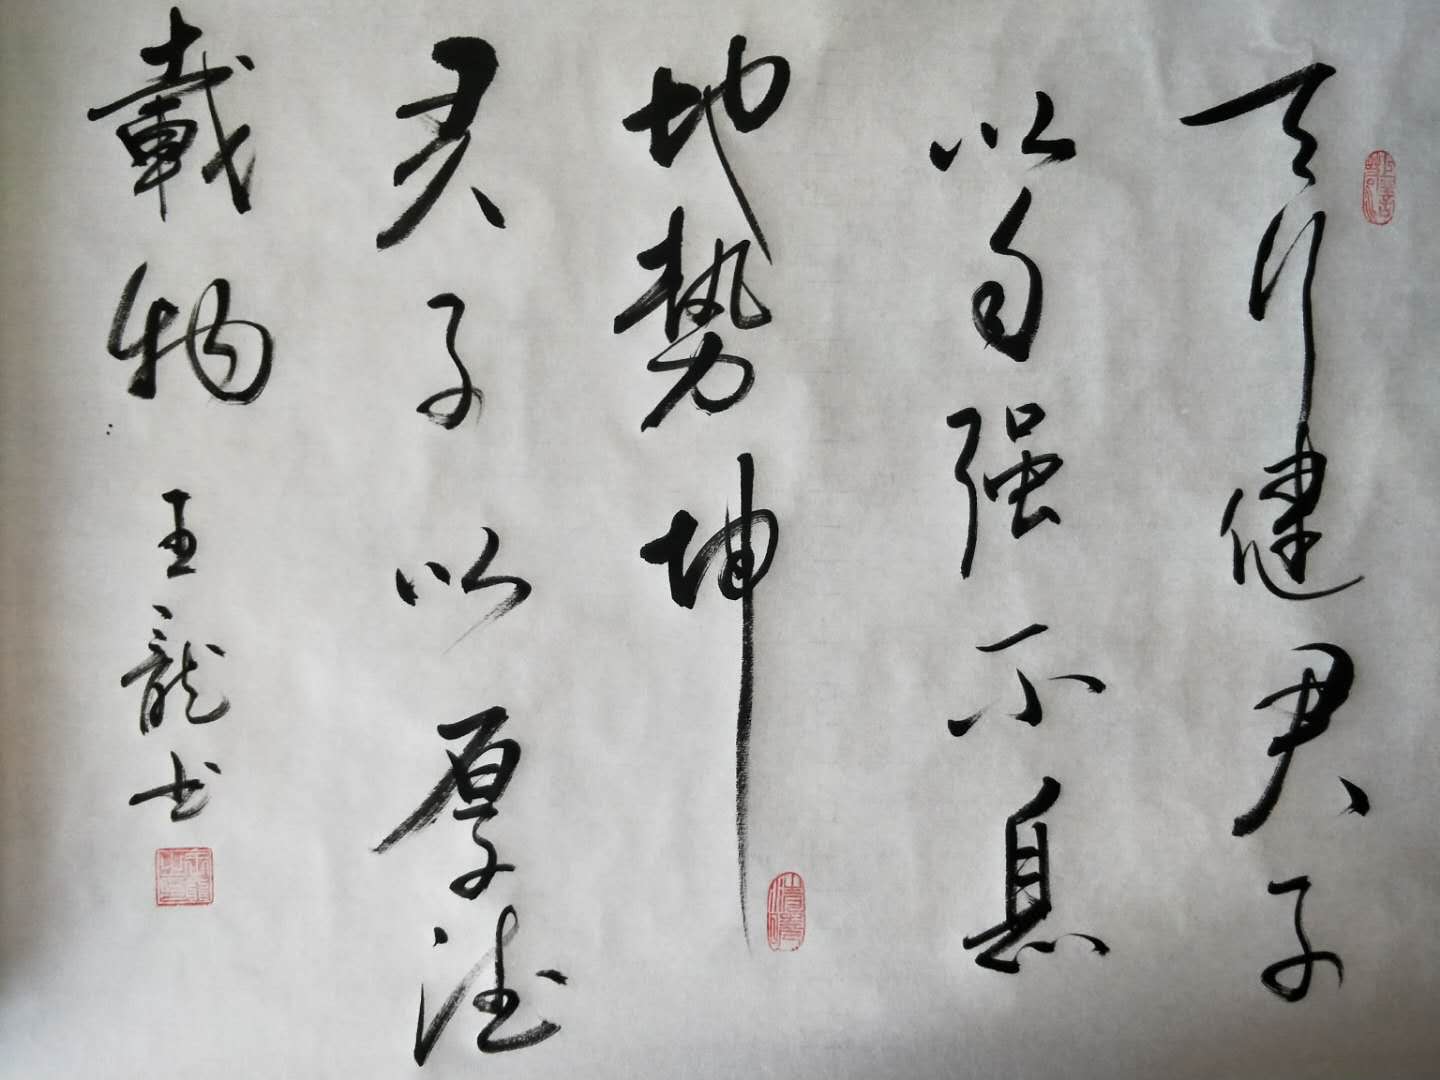 天行健君子
以自强不息
地势坤
君子以厚德
載物
王龍书